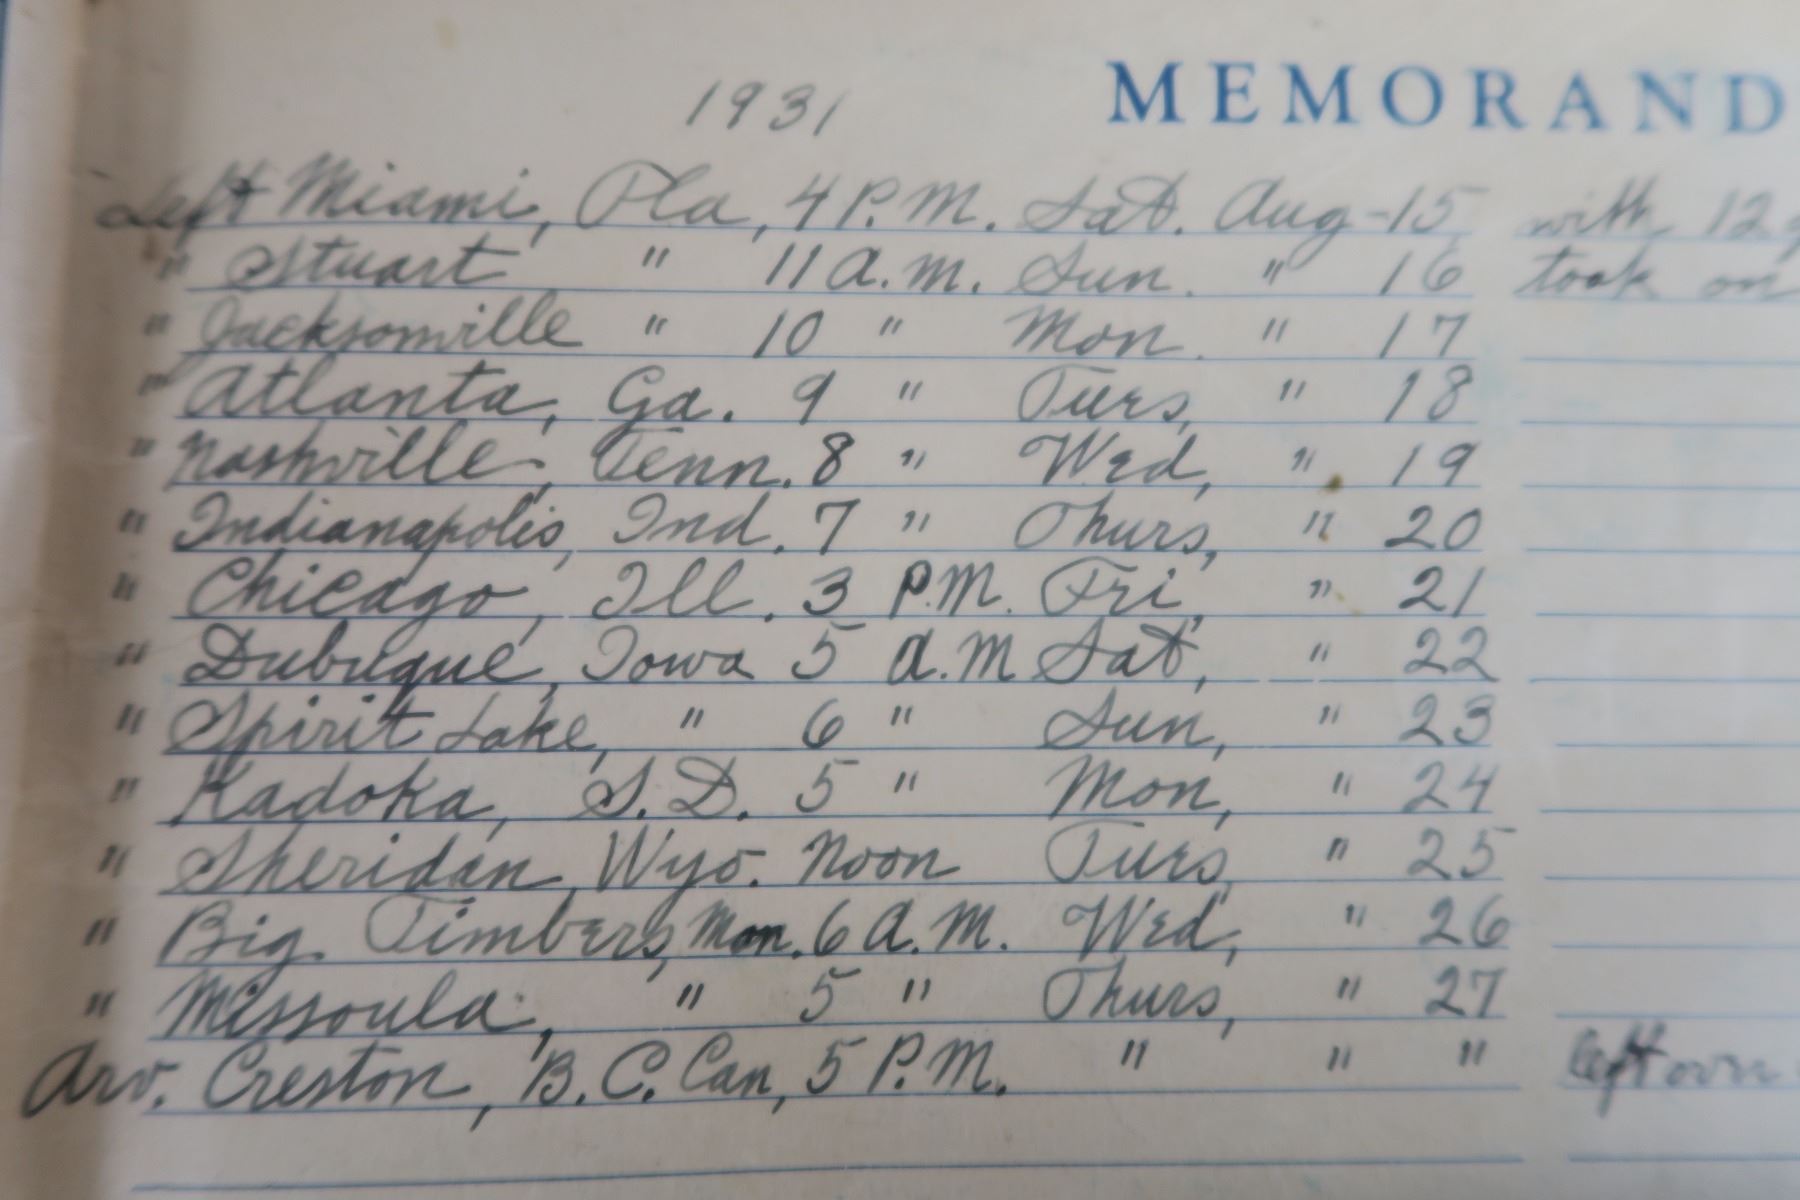 1931
MEMORAND
Left Miami, Fla, 4 P.M. Sat. Aug-15 with 12
" Stuart " 11 a.m. Sun. " 16 took on
" Jacksonville " 10 " Mon. " 17
" Atlanta, Ga. 9 " Tues, " 18
" Nashville, Tenn. 8 " Wed, " 19
" Indianapolis, Ind. 7 " Thurs, " 20
" Chicago, Ill. 3 P.M. Fri, " 21
" Dubuque, Iowa 5 a.M Sat, " 22
" Spirit Lake, " 6 " Sun, " 23
" Kadoka, S.D. 5 " Mon, " 24
" Sheridan, Wyo. Noon Tues, " 25
" Big. Timbers, Mon. 6 A.M. Wed, " 26
" Missoula, " 5 " Thurs, " 27
Arv. Creston, B.C. Can, 5 P.M. " " " left